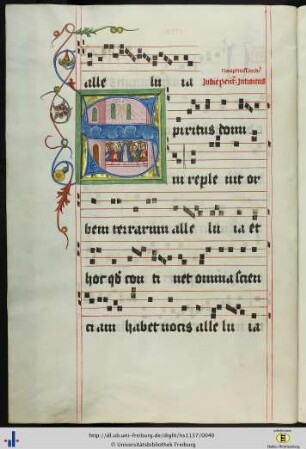 alle lu ia
Indie penth Introitus
piritus domi
ni reple uit or
bem terrarum alle lu ia et
hoc qd con ti net omnia scien
ciam habet uocis alle lu ia
http://dl.ub.uni-freiburg.de/diglit/hs1137/0040
© Universitätsbibliothek Freiburg